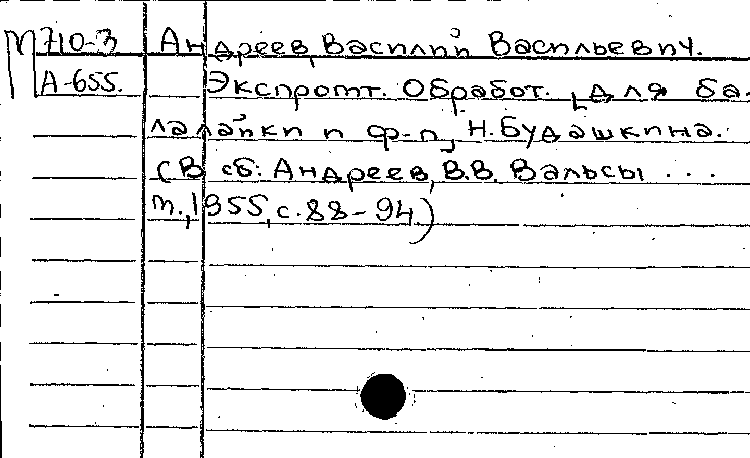 М710-3 Андреев, Василий Васильевич.
А-655. Экспромт. Обработ. [для ба-
лалайки и ф-п, Н. Будашкина.
(В сб: Андреев, В.В. Вальсы ...
М., 1955, с. 88-94)